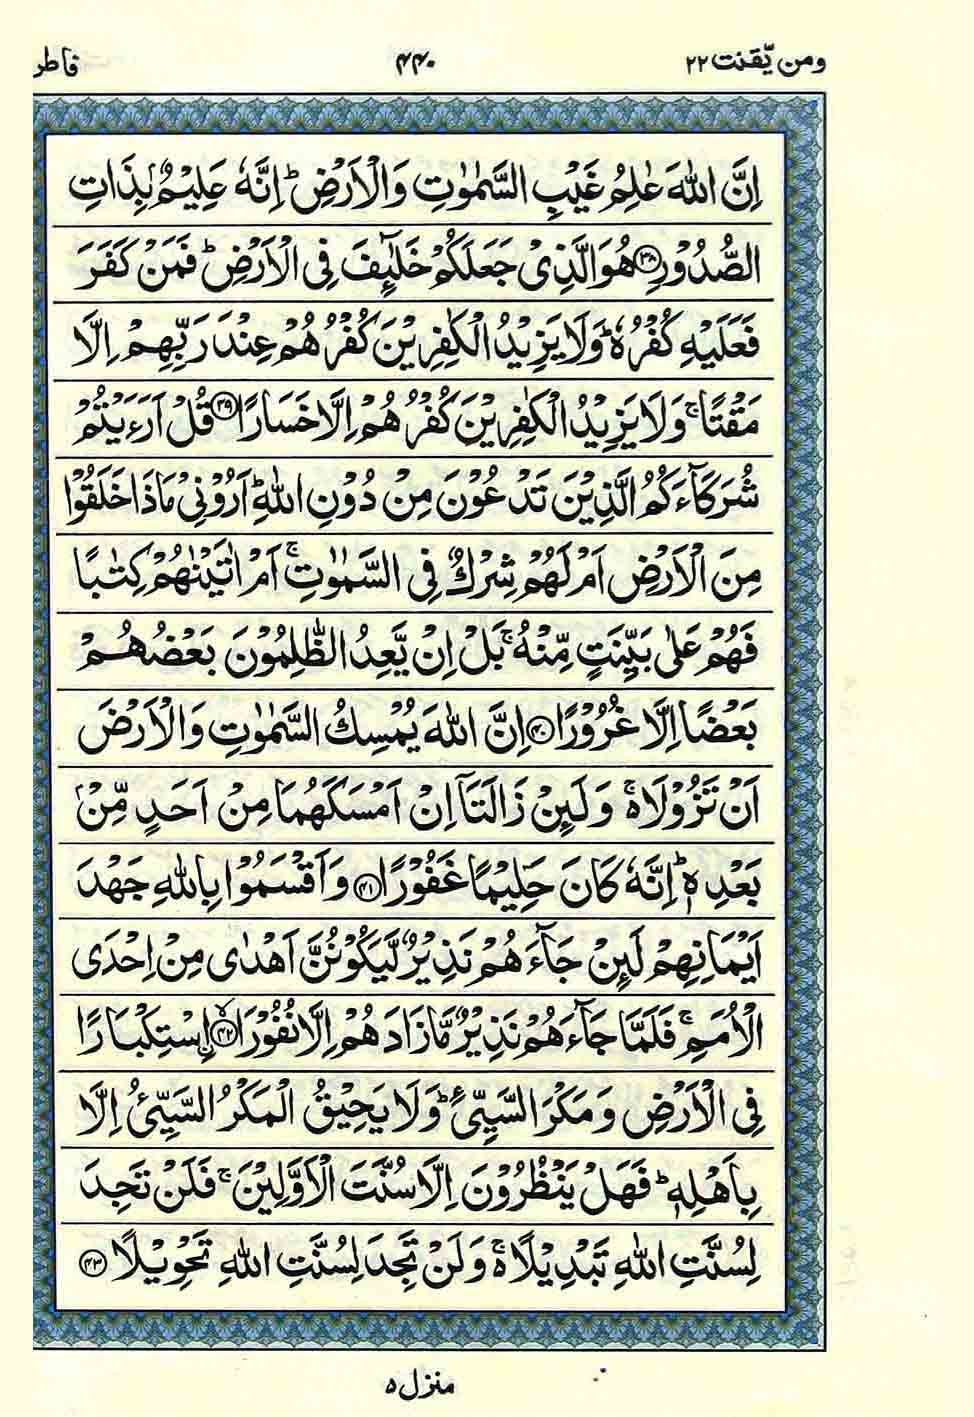 ومن يّقنت ٢٢
٤٤٠
فاطر
اِنَّ اللّٰهَ عٰلِمُ غَيْبِ السَّمٰوٰتِ وَالْاَرْضِ ؕ اِنَّهٗ عَلِيْمٌۢ بِذَاتِ
الصُّدُوْرِ ﴿۳۸﴾ هُوَ الَّذِىْ جَعَلَكُمْ خَلٰٓئِفَ فِى الْاَرْضِ ؕ فَمَنْ كَفَرَ
فَعَلَيْهِ كُفْرُهٗ ؕ وَلَا يَزِيْدُ الْكٰفِرِيْنَ كُفْرُهُمْ عِنْدَ رَبِّهِمْ اِلَّا
مَقْتًا ۚ وَلَا يَزِيْدُ الْكٰفِرِيْنَ كُفْرُهُمْ اِلَّا خَسَارًا ﴿۳۹﴾ قُلْ اَرَءَيْتُمْ
شُرَكَآءَكُمُ الَّذِيْنَ تَدْعُوْنَ مِنْ دُوْنِ اللّٰهِ ؕ اَرُوْنِىْ مَاذَا خَلَقُوْا
مِنَ الْاَرْضِ اَمْ لَهُمْ شِرْكٌ فِى السَّمٰوٰتِ ۚ اَمْ اٰتَيْنٰهُمْ كِتٰبًا
فَهُمْ عَلٰى بَيِّنَتٍ مِّنْهُ ۚ بَلْ اِنْ يَّعِدُ الظّٰلِمُوْنَ بَعْضُهُمْ
بَعْضًا اِلَّا غُرُوْرًا ﴿۴۰﴾ اِنَّ اللّٰهَ يُمْسِكُ السَّمٰوٰتِ وَالْاَرْضَ
اَنْ تَزُوْلَا ۚ۬ وَلَئِنْ زَالَتَاۤ اِنْ اَمْسَكَهُمَا مِنْ اَحَدٍ مِّنْۢ
بَعْدِهٖ ؕ اِنَّهٗ كَانَ حَلِيْمًا غَفُوْرًا ﴿۴۱﴾ وَاَقْسَمُوْا بِاللّٰهِ جَهْدَ
اَيْمَانِهِمْ لَئِنْ جَآءَهُمْ نَذِيْرٌ لَّيَكُوْنُنَّ اَهْدٰى مِنْ اِحْدَى
الْاُمَمِ ۚ فَلَمَّا جَآءَهُمْ نَذِيْرٌ مَّا زَادَهُمْ اِلَّا نُفُوْرًا ۙ﴿۴۲﴾ اۨسْتِكْبَارًا
فِى الْاَرْضِ وَمَكْرَ السَّيِّئِ ؕ وَلَا يَحِيْقُ الْمَكْرُ السَّيِّئُ اِلَّا
بِاَهْلِهٖ ؕ فَهَلْ يَنْظُرُوْنَ اِلَّا سُنَّتَ الْاَوَّلِيْنَ ۚ فَلَنْ تَجِدَ
لِسُنَّتِ اللّٰهِ تَبْدِيْلًا ۚ۬ وَلَنْ تَجِدَ لِسُنَّتِ اللّٰهِ تَحْوِيْلًا ﴿۴۳﴾
منزل ٥